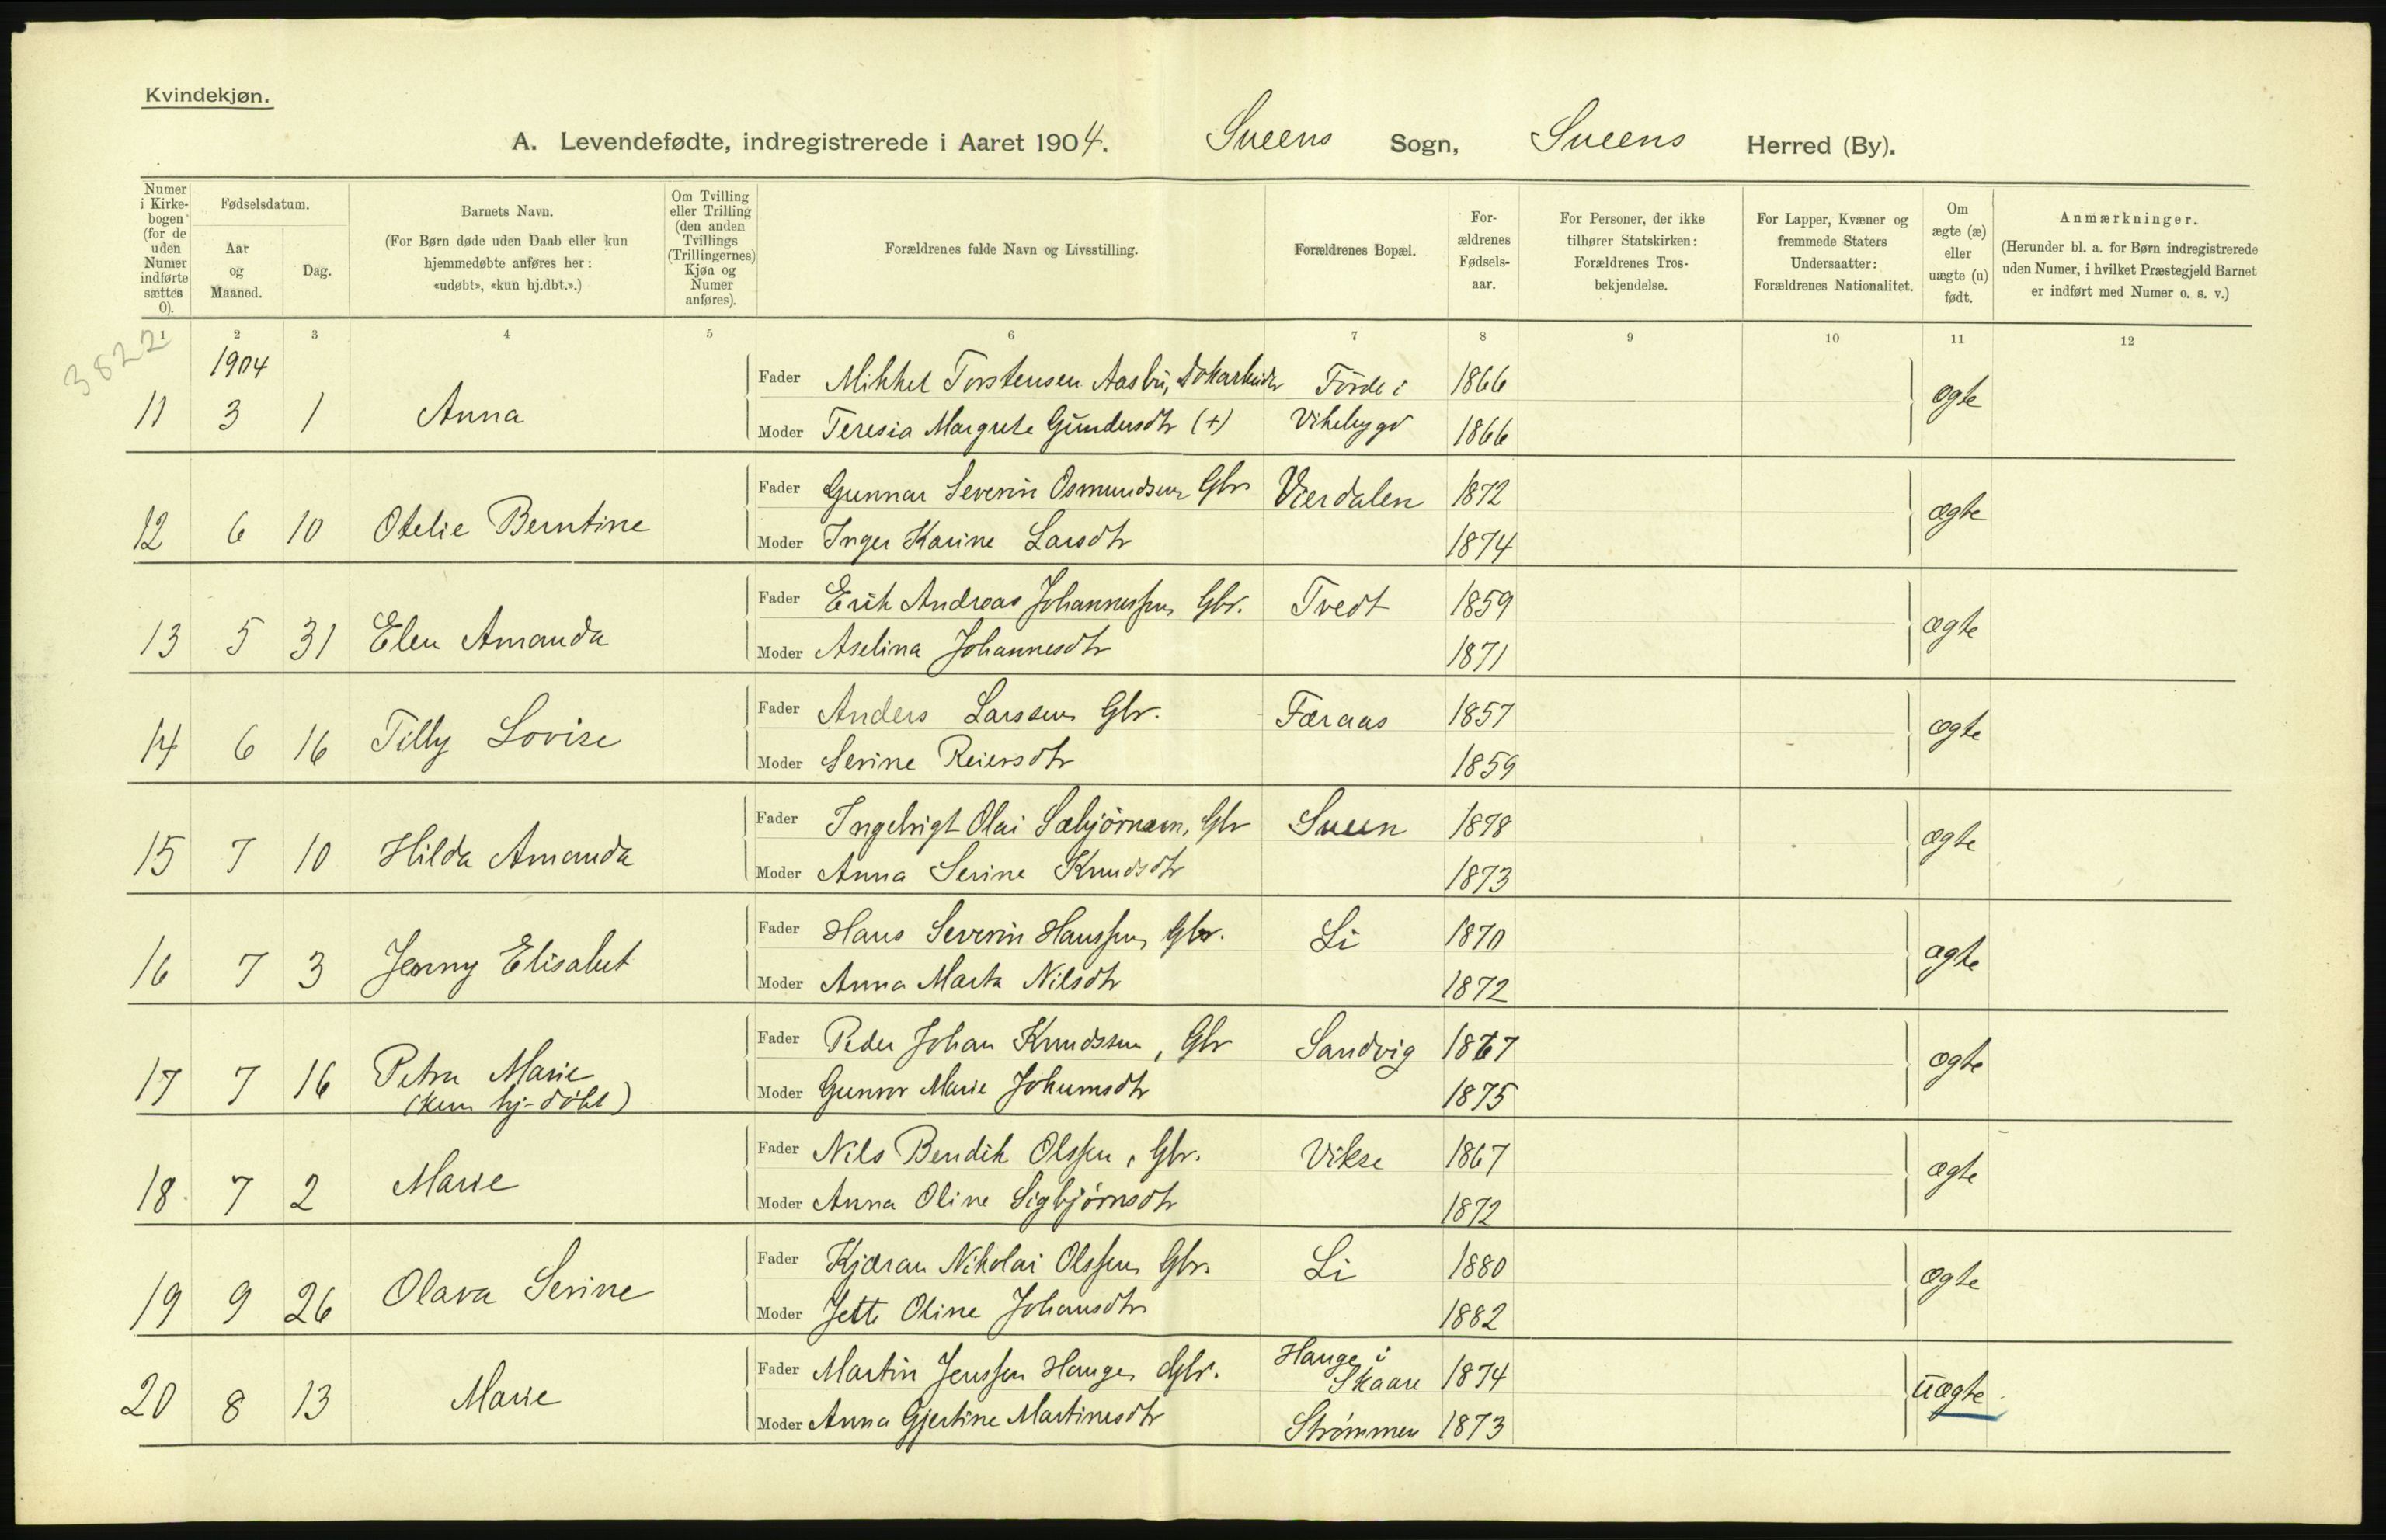 Kvindekjøn.
A. Levendefødte, indregistrerede i Aaret 1904. Sveens Sogn, Sveens Herred (By).
Numer i Kirke-bogen (for de uden Numer indførte sættes 0).
Fødselsdatum.
Aar og Maaned.
Dag.
Barnets Navn.
(For Børn døde uden Daab eller kun hjemmedøbte anføres her: «udøbt», «kun hj.dbt.».)
Om Tvilling eller Trilling (den anden Tvillings (Trillingernes) Kjøn og Numer anføres).
Forældrenes fulde Navn og Livsstilling.
Forældrenes Bopæl.
For-ældrenes Fødsels-aar.
For Personer, der ikke tilhører Statskirken: Forældrenes Tros-bekjendelse.
For Lapper, Kvæner og fremmede Staters Undersaatter: Forældrenes Nationalitet.
Om ægte (æ) eller uægte (u) født.
Anmærkninger.
(Herunder bl. a. for Børn indregistrerede uden Numer, i hvilket Præstegjeld Barnet er indført med Numer o. s. v.)
1 2 3 4 5 6 7 8 9 10 11 12
3822
1904
Fader Mikkel Torstensen Aasbu, Dokarbeider Førde i 1866
11 3 1 Anna ægte
Moder Teresia Margrete Gundersdtr (+) Vikebygd 1866
Fader Gunnar Severin Osmundsen Gbr. Værdalen 1872
12 6 10 Otelie Berntine ægte
Moder Inger Karine Larsdtr 1874
Fader Erik Andreas Johannessen Gbr. Tvedt 1859
13 5 31 Elen Amanda ægte
Moder Aselina Johannesdtr 1871
Fader Anders Larssen Gbr. Færaas 1857
14 6 16 Tilly Lovise ægte
Moder Serine Reiersdtr 1859
Fader Ingebrigt Olai Sæbjørnsen, Gbr Sveen 1878
15 7 10 Hilda Amanda ægte
Moder Anna Serine Knudsdtr 1873
Fader Hans Severin Hanssen Gbr. Li 1870
16 7 3 Jenny Elisabet ægte
Moder Anna Marta Nilsdtr 1872
Fader Peder Johan Knudssen, Gbr Sandvig 1867
17 7 16 Petra Marie ægte
(kun hj-døbt)
Moder Gunvor Marie Johannsdtr 1875
Fader Nils Bendik Olssen, Gbr. Vikse 1867
18 7 2 Marie ægte
Moder Anna Oline Sigbjørnsdtr 1872
Fader Kjæran Nikolai Olssen Gbr. Li 1880
19 9 26 Olava Serine ægte
Moder Jette Oline Johansdtr 1882
Fader Martin Jenssen Hauge, Gbr. Hauge i Skaare 1874
20 8 13 Marie uægte
Moder Anna Gjertine Martinesdtr Strømmen 1873